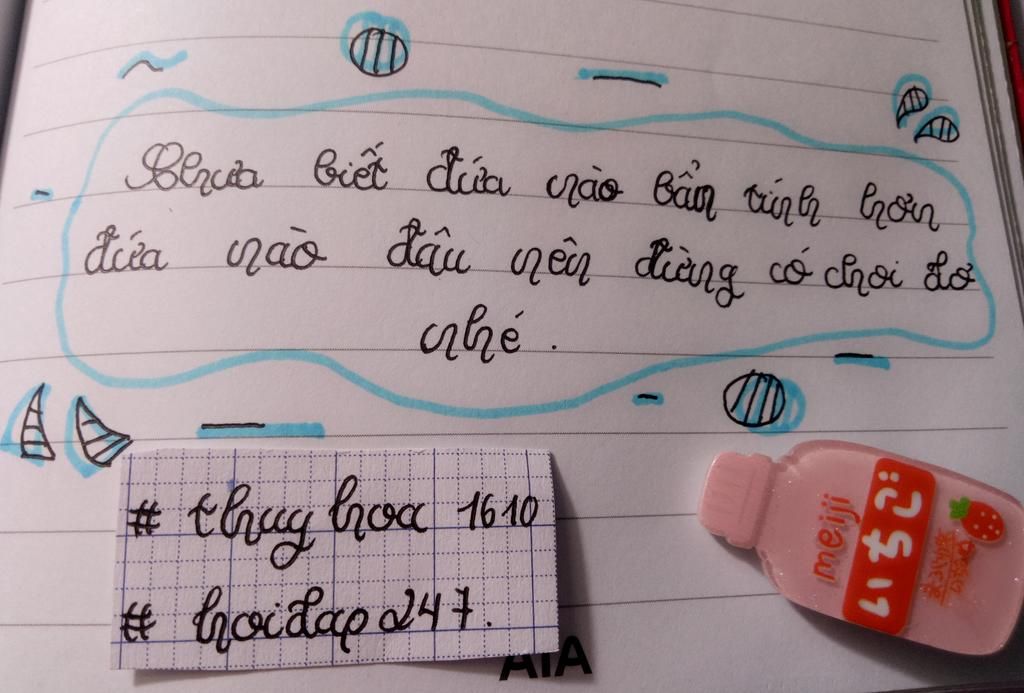 Chưa biết đứa nào bẩn tính hơn
đứa nào đâu nên đừng có chơi dơ
nhé.
# thuyhoa 1610
# hoidap247.
AIA
meiji
いちご